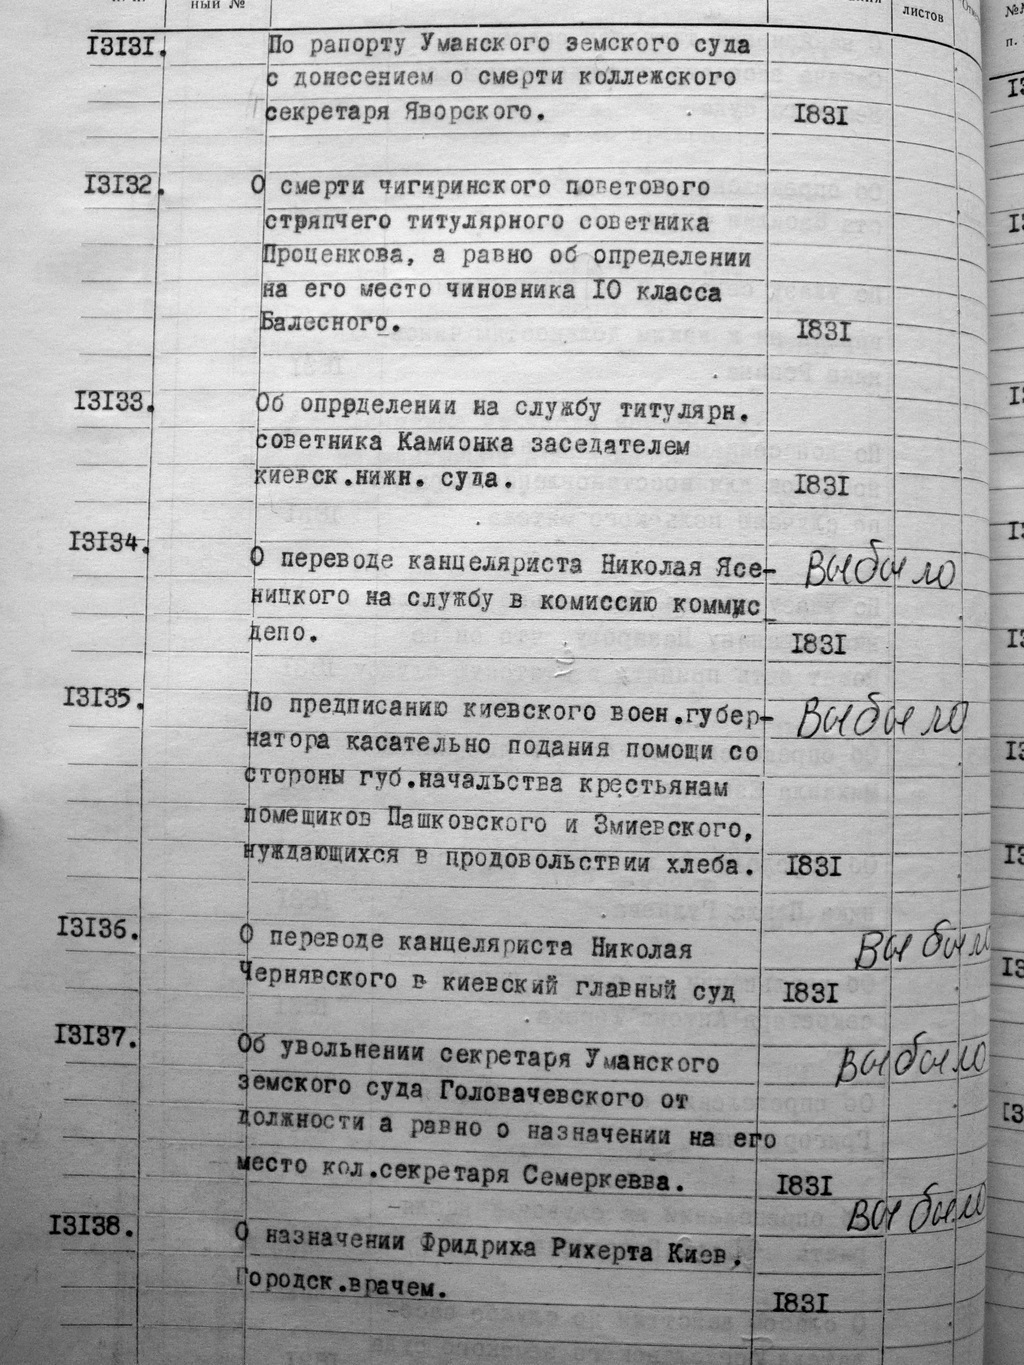 ный №
листов
13131. По рапорту Уманского земского суда
с донесением о смерти коллежского
секретаря Яворского. 1831
13132. О смерти чигиринского поветового
стряпчего титулярного советника
Проценкова, а равно об определении
на его место чиновника 10 класса
Балесного. 1831
13133. Об опррделении на службу титулярн.
советника Камионка заседателем
киевск.нижн. суда. 1831
13134. О переводе канцеляриста Николая Ясе- Выбыло
ницкого на службу в комиссию коммис_
депо. 1831
13135. По предписанию киевского воен.губер- Выбыло
натора касательно подания помощи со
стороны губ.начальства крестьянам
помещиков Пашковского и Змиевского,
нуждающихся в продовольствии хлеба. 1831
13136. О переводе канцеляриста Николая Выбыло
Чернявского в киевский главный суд 1831
13137. Об увольнении секретаря Уманского Выбыло
земского суда Головачевского от
должности а равно о назначении на его
место кол.секретаря Семеркевва. 1831
13138. О назначении Фридриха Рихерта Киев. Выбыло
Городск.врачем. 1831